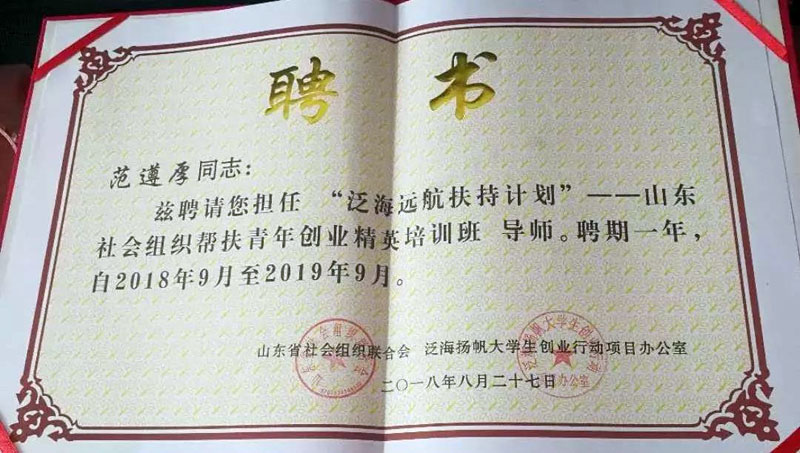 聘 书
范遵厚同志：
兹聘请您担任 “泛海远航扶持计划”——山东
社会组织帮扶青年创业精英培训班 导师。聘期一年，
自2018年9月至2019年9月。
山东省社会组织联合会 泛海扬帆大学生创业行动项目办公室
二〇一八年八月二十七日